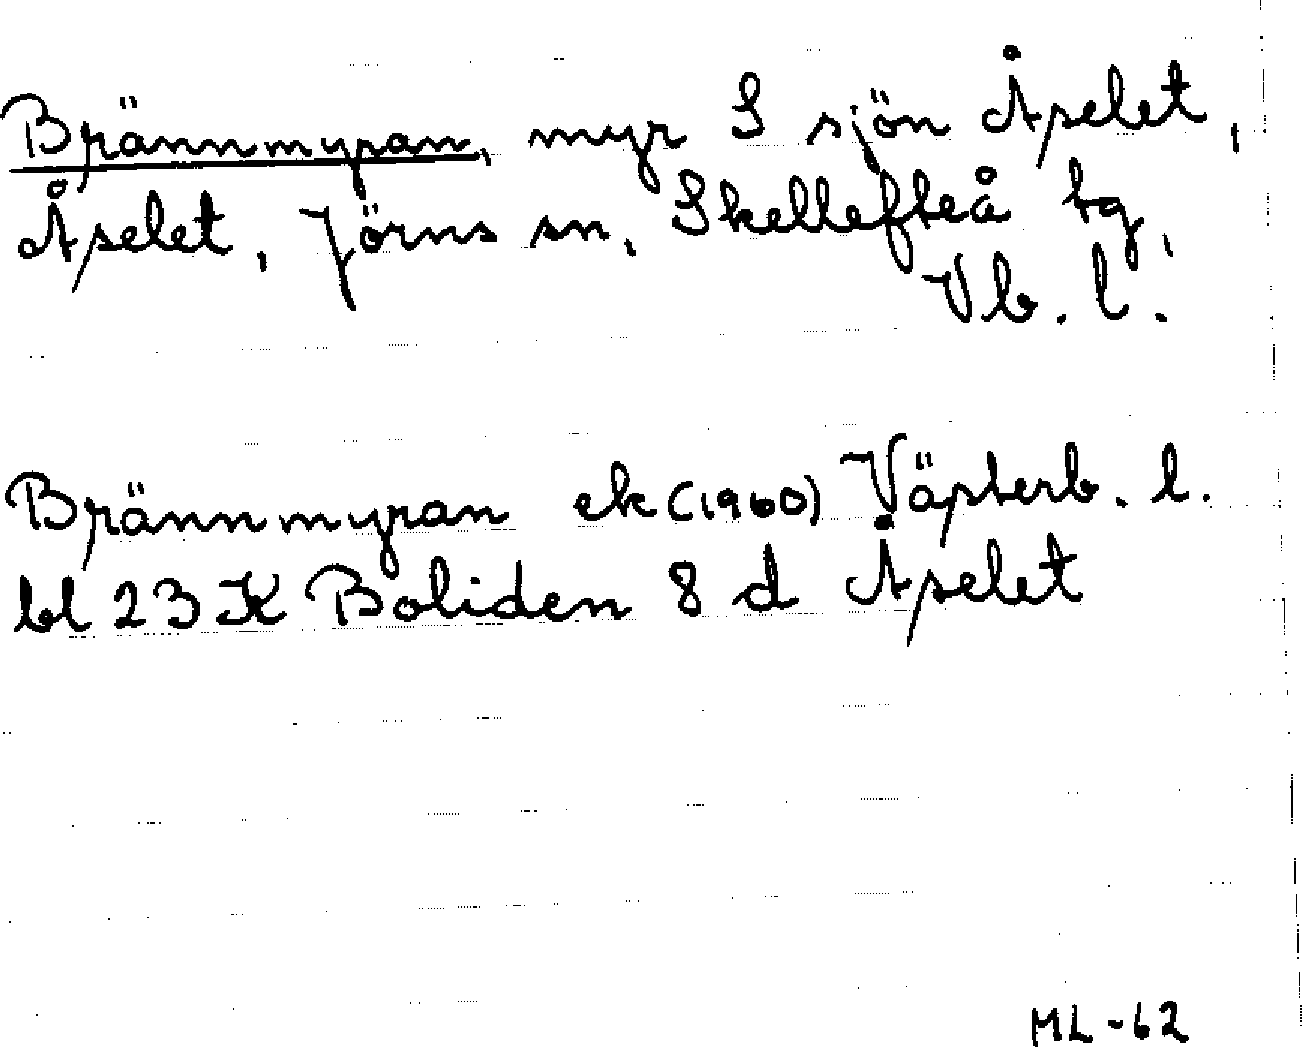 Brännmyran, myr S sjön Åselet,
Åselet, Jörns sn, Skellefteå tg,
Vb. l.
Brännmyran ek (1960) Västerb. l.
bl 23 K Boliden 8 d Åselet
ML -62